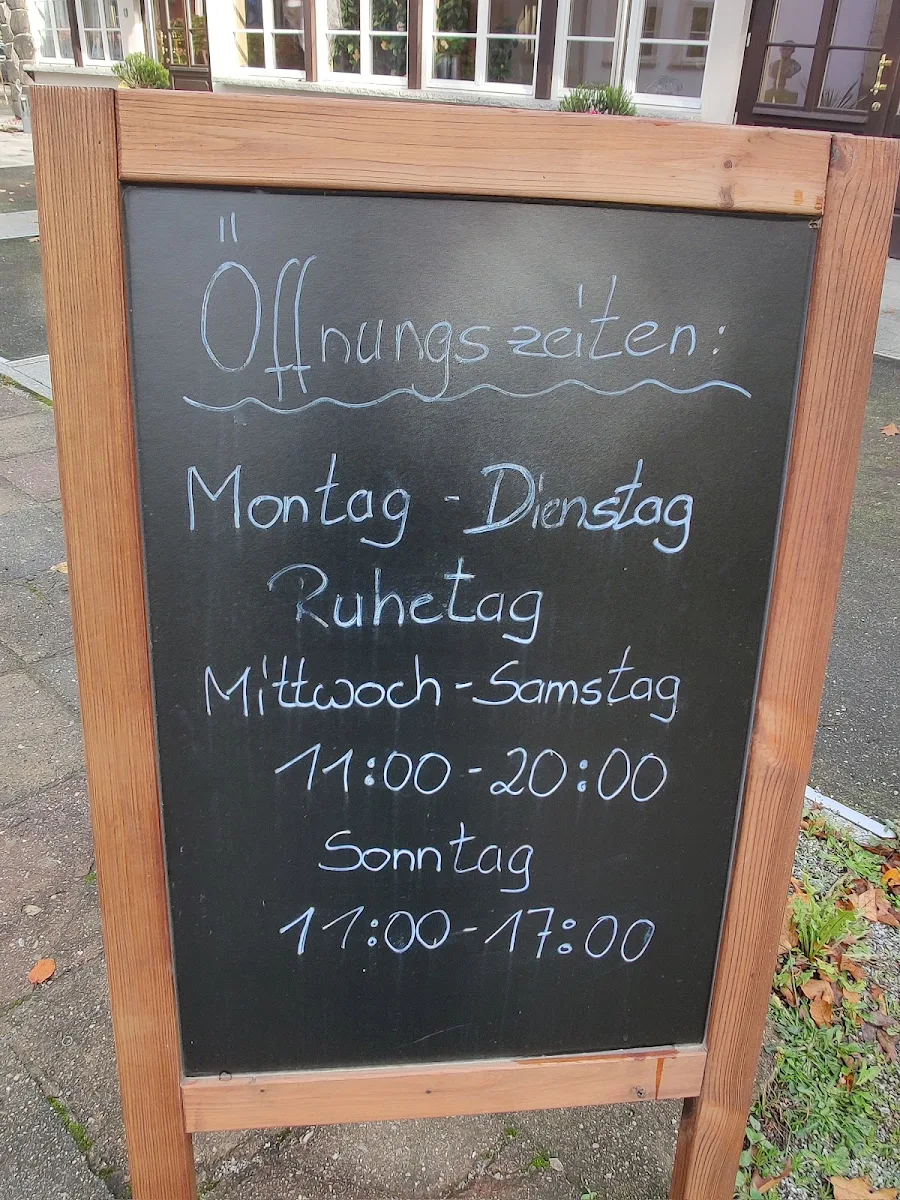 Öffnungszeiten:
Montag - Dienstag
Ruhetag
Mittwoch - Samstag
11:00 - 20:00
Sonntag
11:00 - 17:00